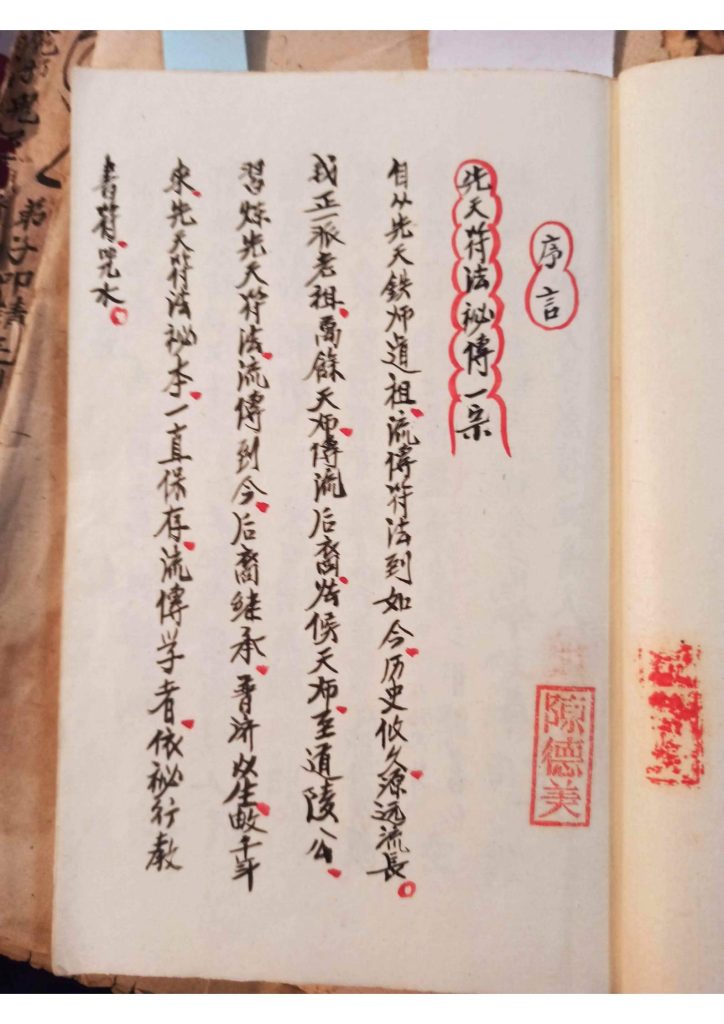 序言
先天符法祕傳一宗
自从先天鉄师道祖流傳符法到如今历史攸久源远流長
我正一派老祖禹餘天师傳流后裔法候天师至道陵公
習炼先天符法流傳到今后裔継承普济众生数千年
来先天符法祕本一直保存流傳学者依祕行教
書符咒水
陳德美
弟子叩請